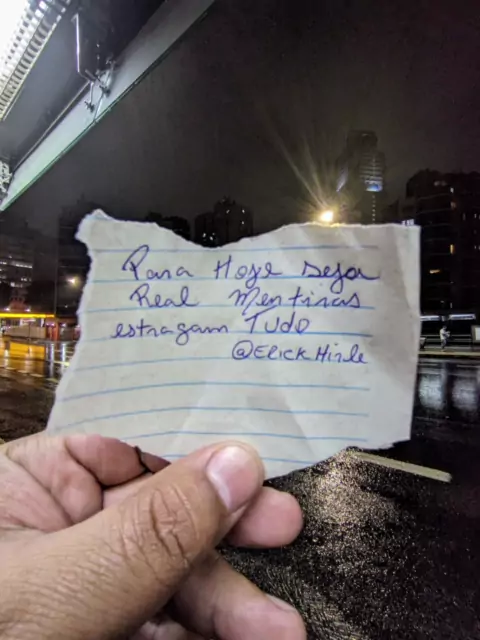 Para Hoje seja
Real Mentiras
estragam Tudo
@ErickHirle